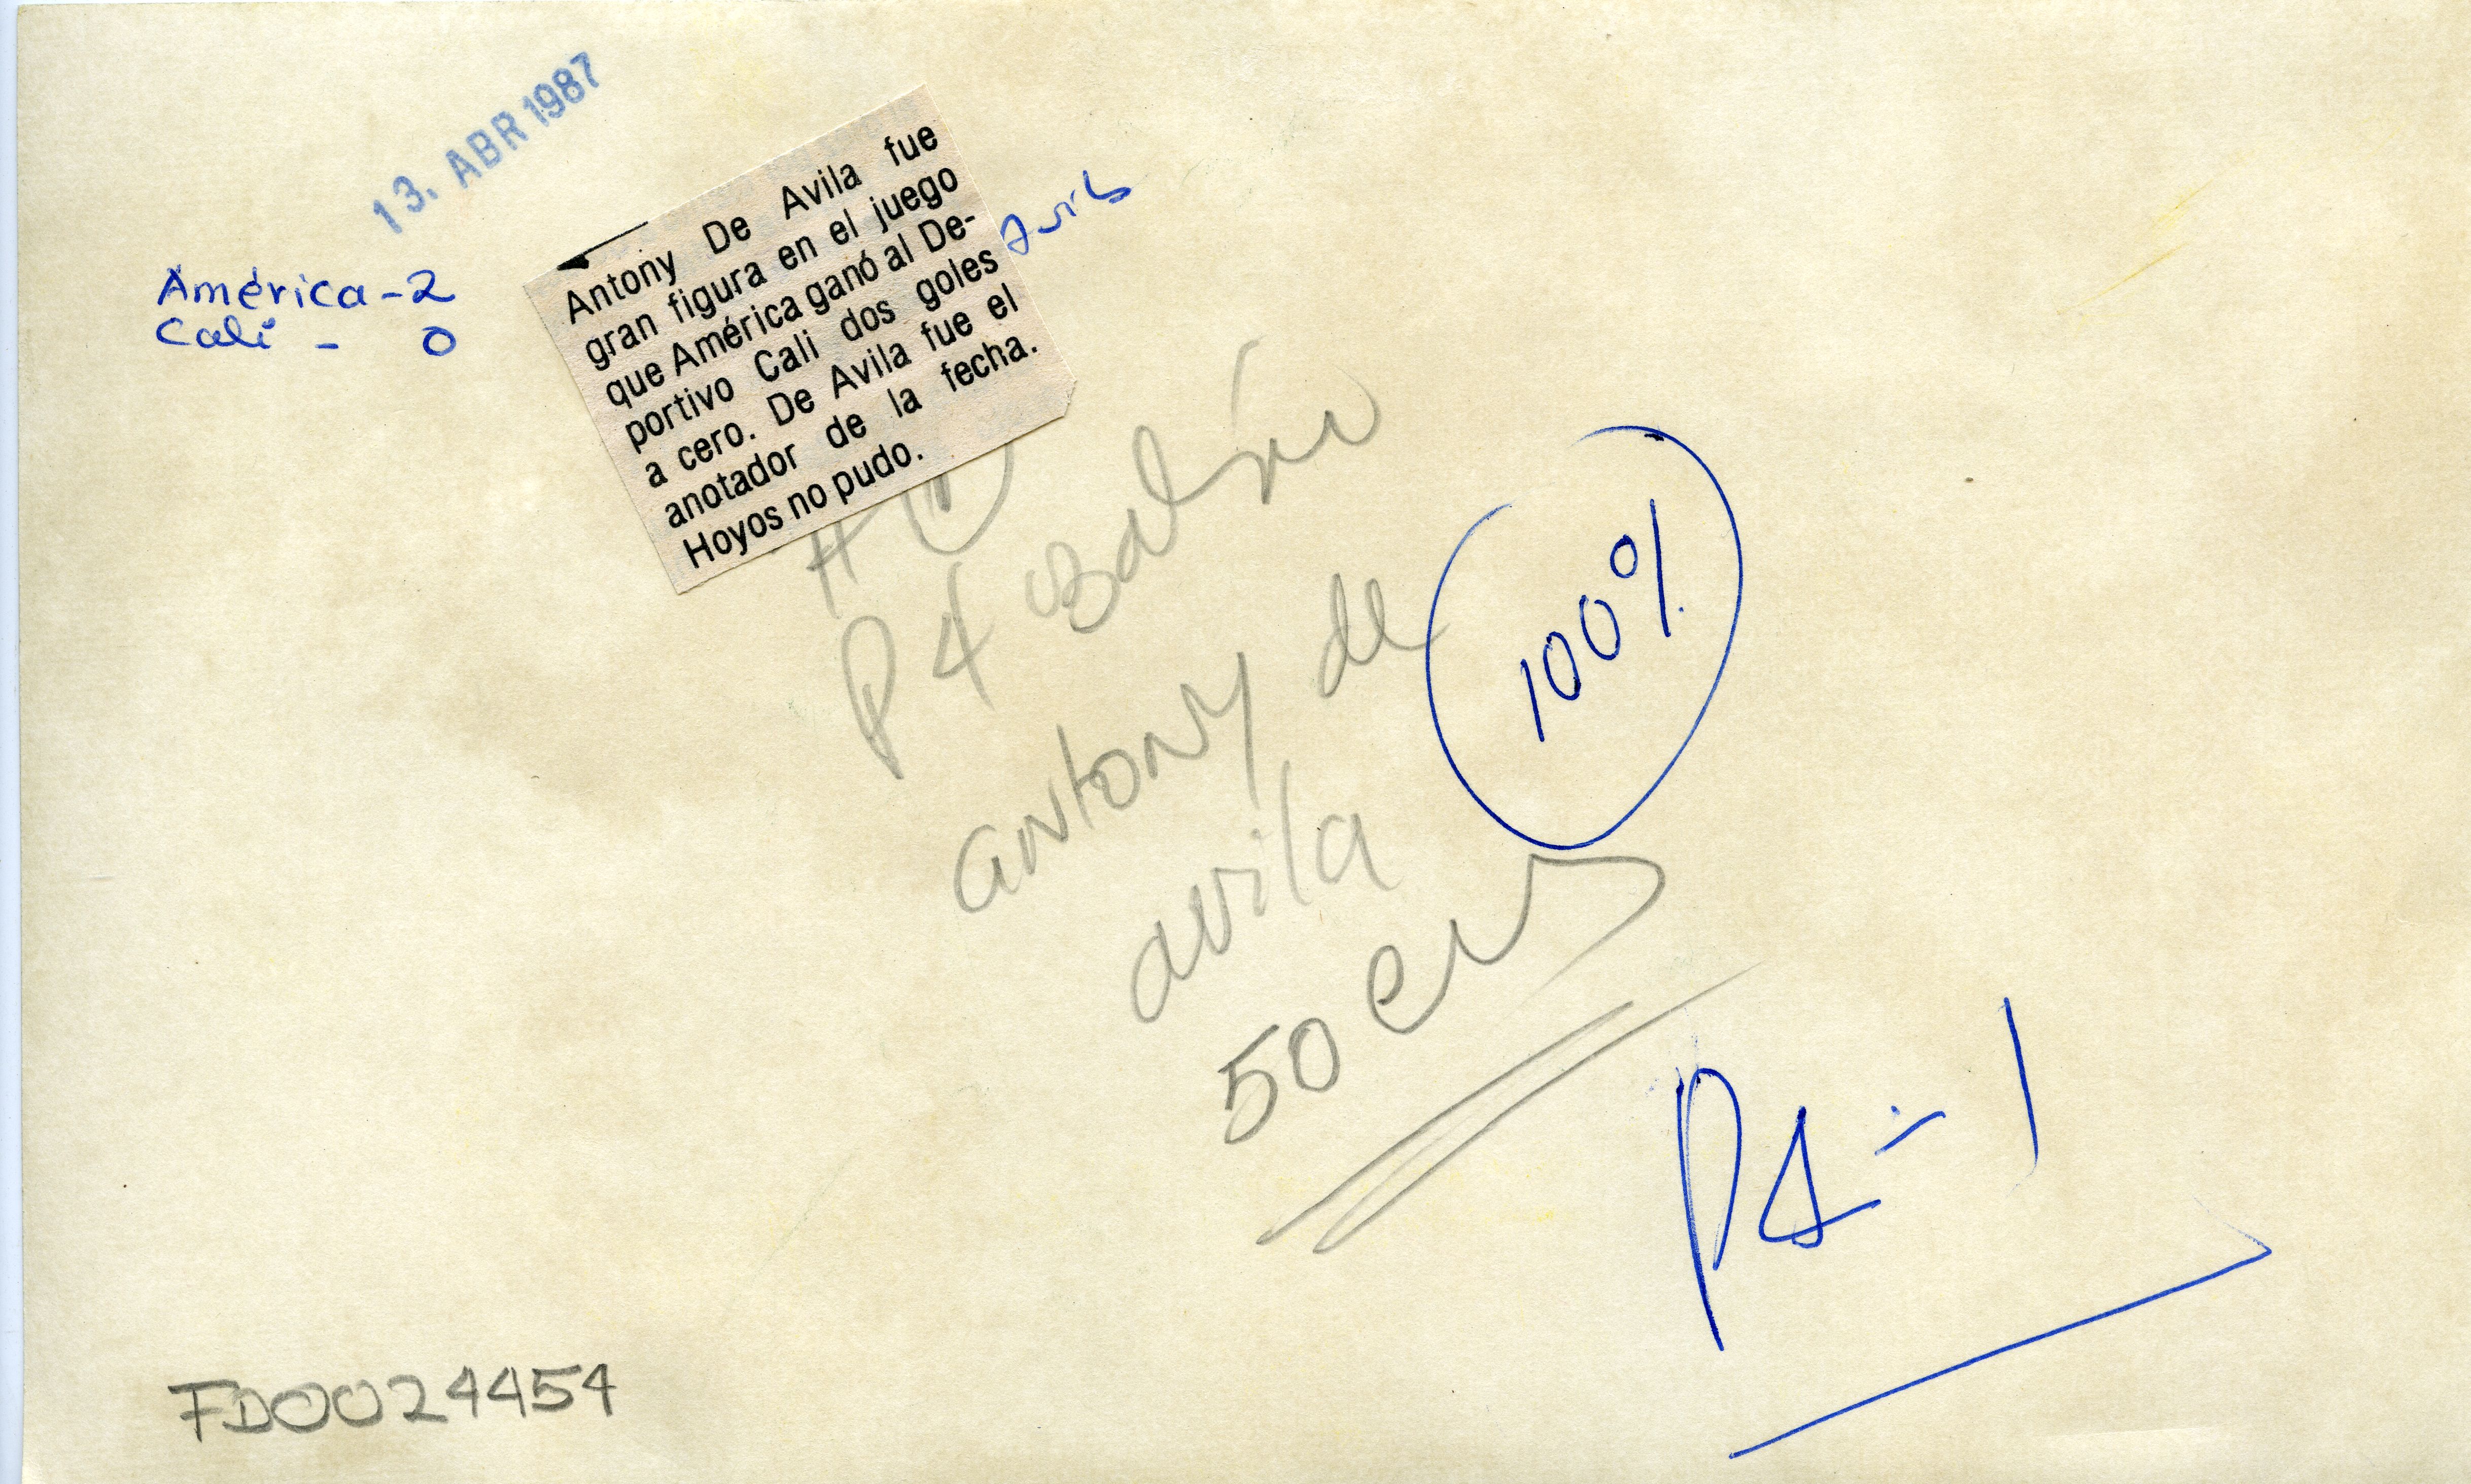 13. ABR 1987
América - 2
Cali - 0
Antony De Avila fue
gran figura en el juego
que América ganó al De-
portivo Cali dos goles
a cero. De Avila fue el
anotador de la fecha.
Hoyos no pudo.
Avila
P4 Balín
antony de
avila
50 cms
100%
P4-1
FD0024454